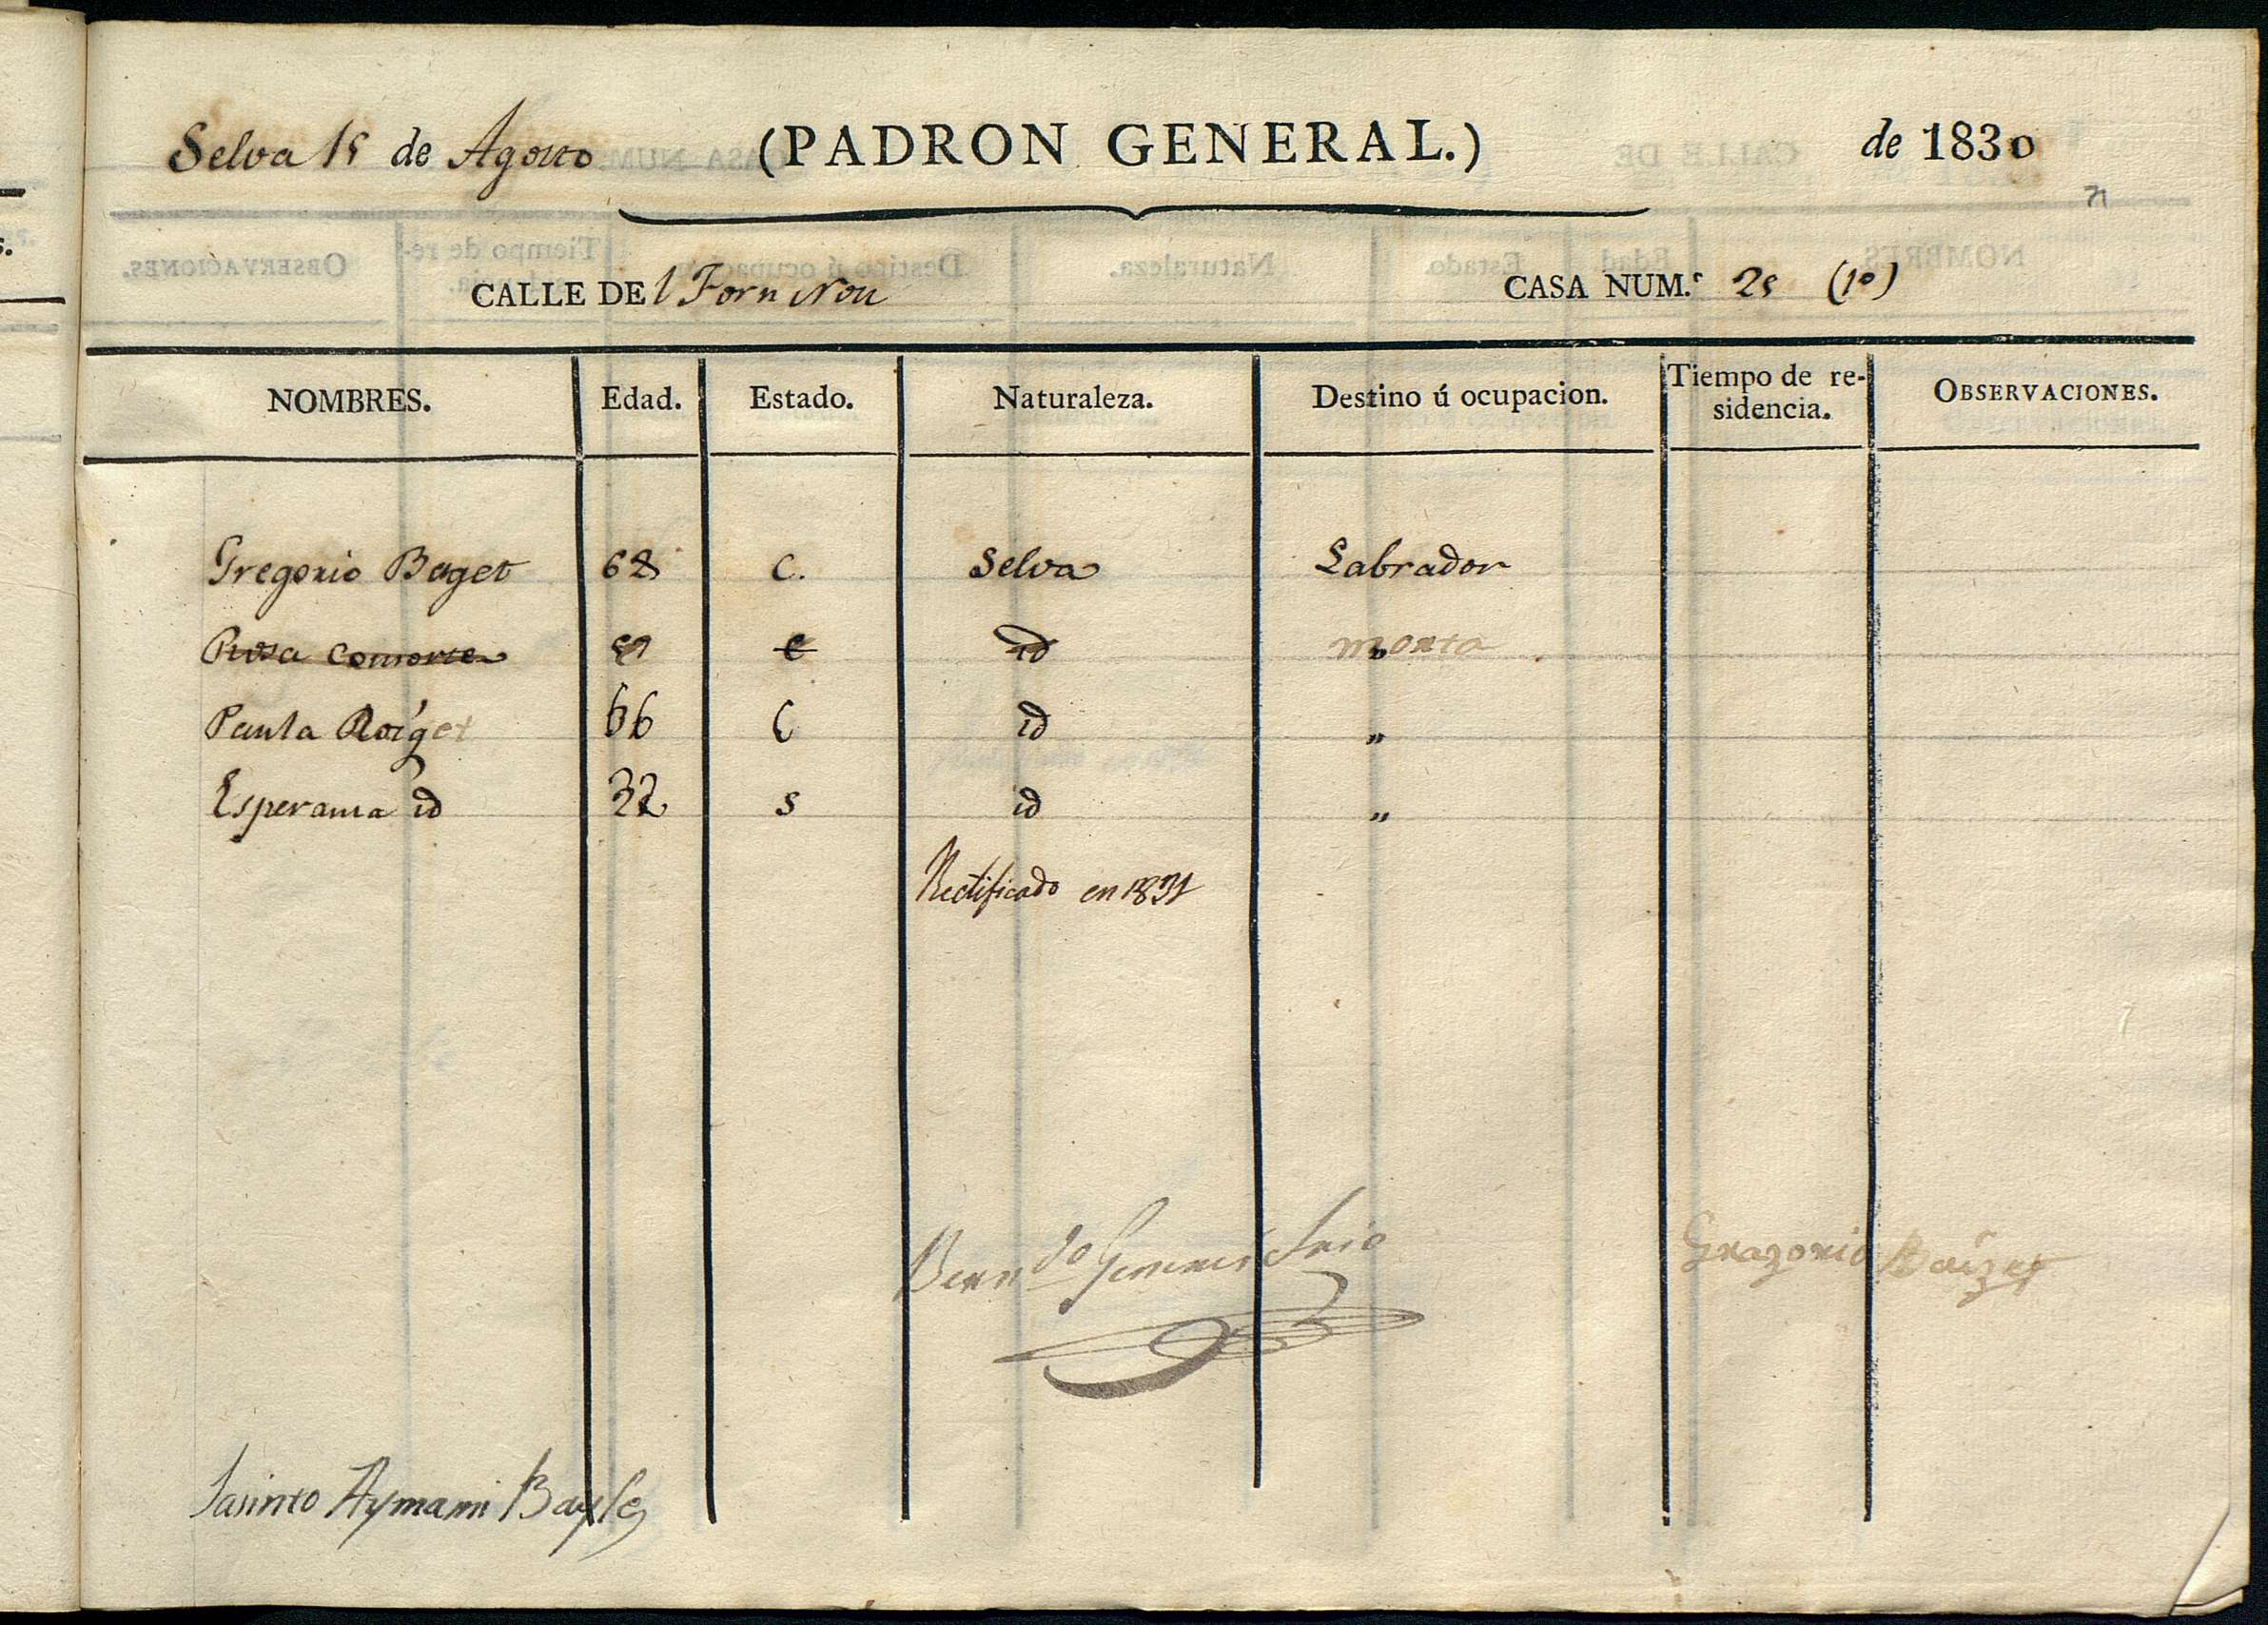 Selva 15 de Agosto (PADRON GENERAL.) de 1830
71
CALLE DE l Forn Nou CASA NUM.º 25 (1º)
NOMBRES. Edad. Estado. Naturaleza. Destino ú ocupacion. Tiempo de re-sidencia. OBSERVACIONES.
Gregorio Baget 68 C. Selva Labrador
Rosa Consorte C id morta
Paula Roiget 66 C id "
Esperansa id 32 s id "
Rectificado en 1831
Berndo Srio
Gragorio
Jasinto Aymami Bayle